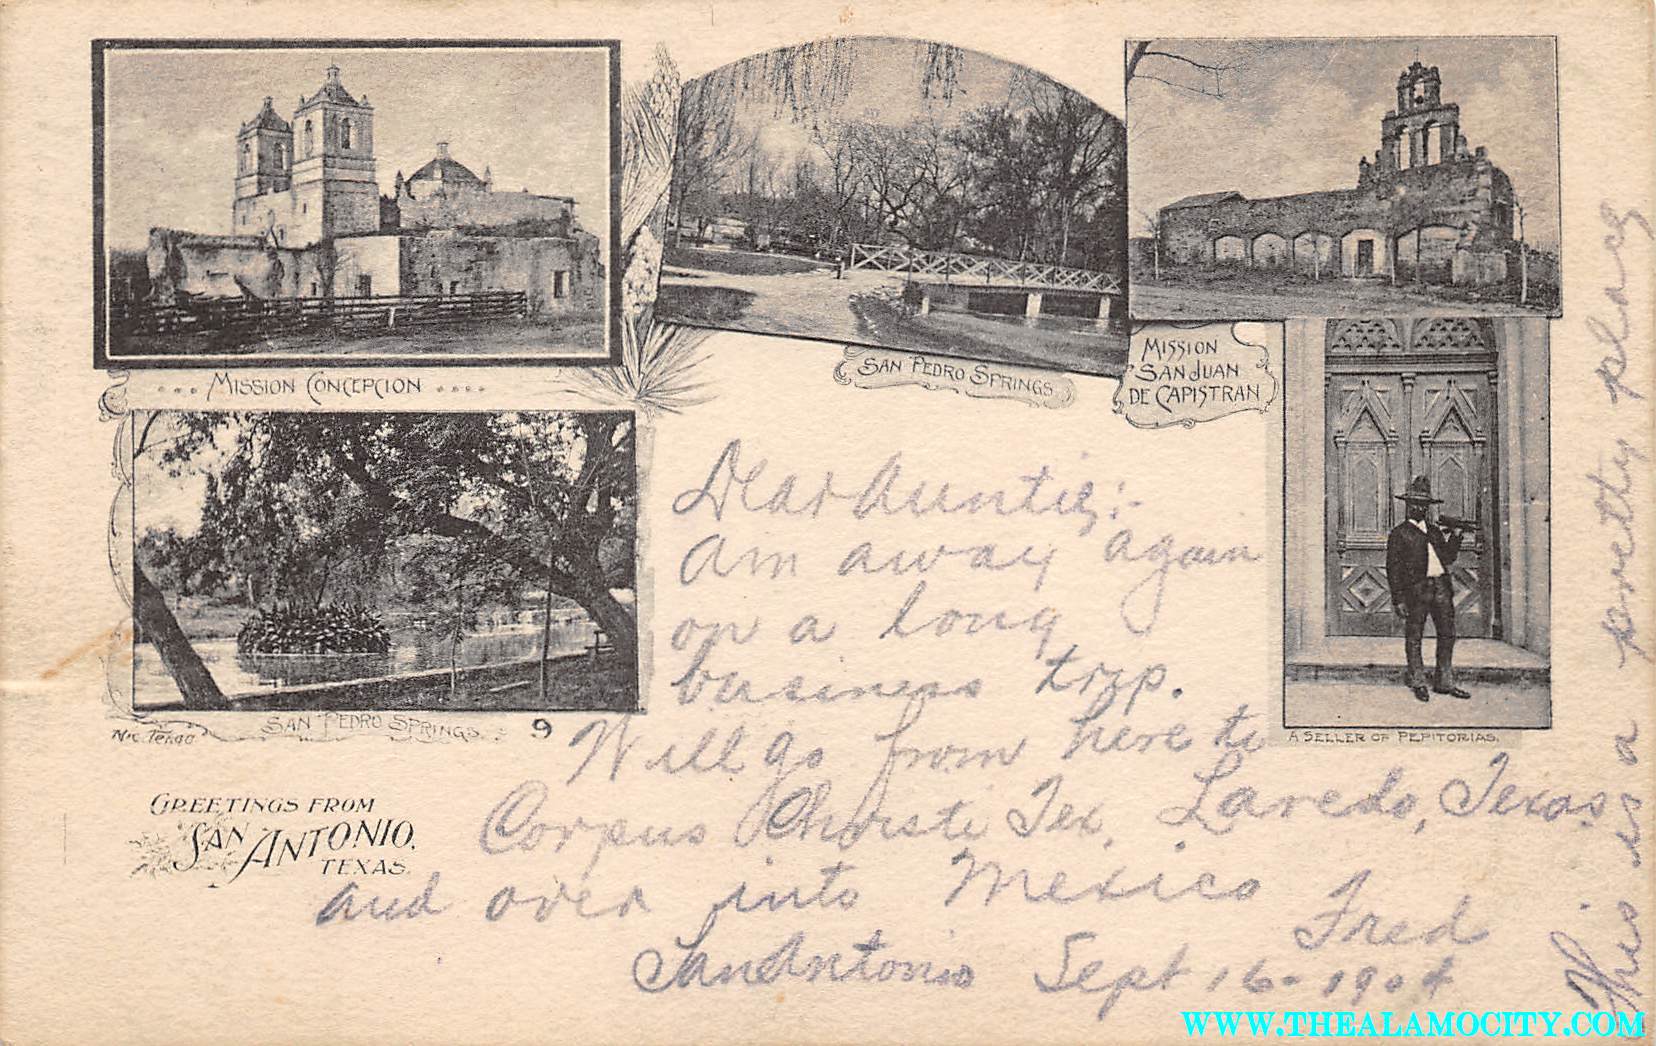 MISSION CONCEPCION
SAN PEDRO SPRINGS
MISSION
SAN JUAN
DE CAPISTRAN
SAN PEDRO SPRINGS.
9
A SELLER OF PEPITORIAS.
GREETINGS FROM
SAN ANTONIO,
TEXAS.
Dear Auntie:-
am away again
on a long
business trip.
Will go from here to
Corpus Christi Tex, Laredo, Texas
and over into Mexico
Fred
San Antonio Sept 16-1904
This is a pretty place
WWW.THEALAMOCITY.COM